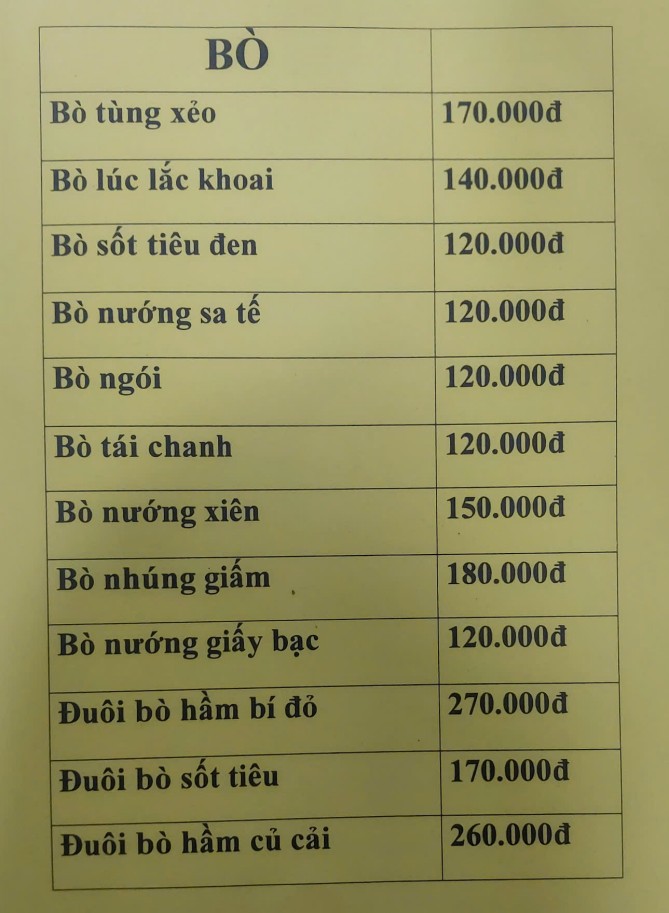 BÒ
Bò tùng xẻo 170.000đ
Bò lúc lắc khoai 140.000đ
Bò sốt tiêu đen 120.000đ
Bò nướng sa tế 120.000đ
Bò ngói 120.000đ
Bò tái chanh 120.000đ
Bò nướng xiên 150.000đ
Bò nhúng giấm 180.000đ
Bò nướng giấy bạc 120.000đ
Đuôi bò hầm bí đỏ 270.000đ
Đuôi bò sốt tiêu 170.000đ
Đuôi bò hầm củ cải 260.000đ